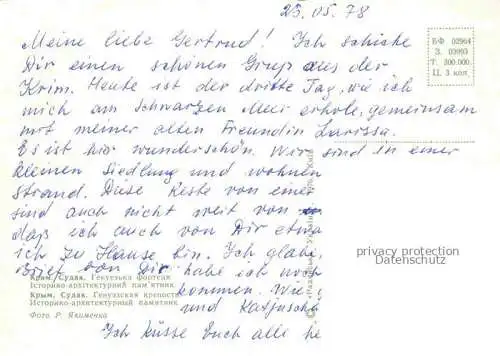 23.05.78
Meine liebe Gertrud! Ich schicke
Dir einen schönen Gruß aus der
Krim. Heute ist der dritte Tag, wie ich
mich am Schwarzen Meer erhole, gemeinsam
mit meiner alten Freundin Larissa.
Es ist hier wunderschön. Wir sind in einer
kleinen Siedlung und wohnen
Strand. Diese Reste von einer
sind auch nicht weit von
daß ich auch von Dir etwa
ich zu Hause bin. Ich glaube,
Brief von Dir habe ich noch
kommen. Wie
und Katjuscha
Ich küsse Euch alle he
БФ 02964
З. 03993
Т. 300.000.
Ц. 3 коп.
Крим. Судак. Генуезька фортеця.
Історико-архітектурний пам'ятник.
Крым. Судак. Генуэзская крепость.
Историко-архитектурный памятник.
Фото Р. Якименко
privacy protection
Datenschutz